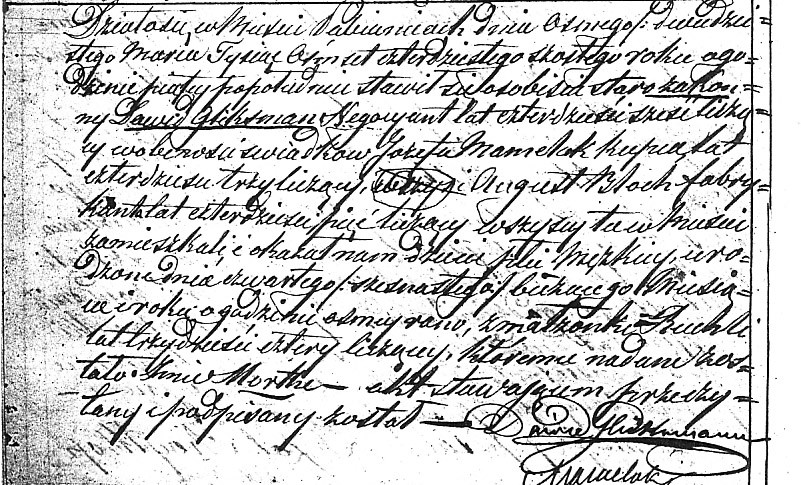 Działo się w Mieście Pabianicach dnia Osmego /: dwudzie=
stego Marca Tysiąc Ośmset czterdziestego szóstego roku o go=
dzinie piątey popołudniu stawił się osobiście starozakon=
ny Dawid Gliksman Negocyant lat czterdzieści sześć liczą=
cy w obecności świadków Józefa Mamelok kupca, lat
czterdzieści trzy liczący, i August Bloch fabry=
kant lat czterdzieści pięć liczący wszyscy tu w Mieście
zamieszkali, i okazał nam dziecie płci Męzkiey, uro=
dzone dnia czwartego /: szesnastego :/ bieżącego Miesią=
ca i roku, o godzinie osmey rano, z małżonki Ruchli
lat trzydzieści cztery liczącey, któremu nadane zos=
tało Imie Mortke — akt stawaiącym przeczy=
tany i podpisany został —
Dawid Glicksmann
Mamelok